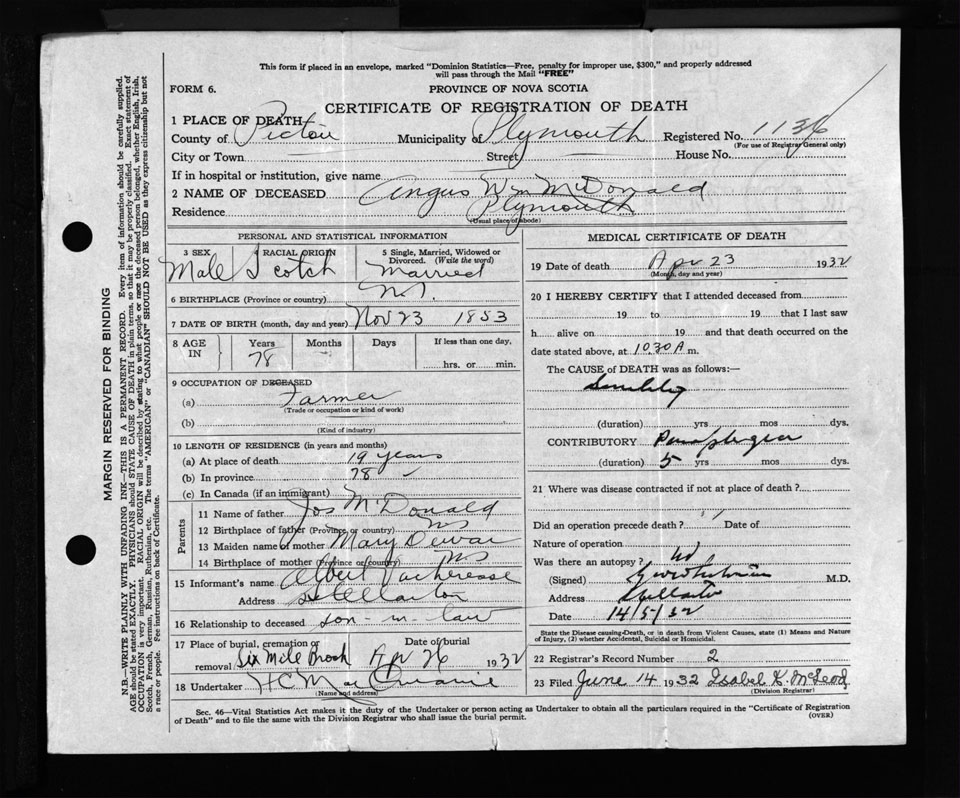 This form if placed in an envelope, marked "Dominion Statistics—Free, penalty for improper use, $300," and properly addressed
will pass through the Mail "FREE"
FORM 6.
PROVINCE OF NOVA SCOTIA
CERTIFICATE OF REGISTRATION OF DEATH
1 PLACE OF DEATH
County of Pictou Municipality of Plymouth Registered No. 1136
(For use of Registrar General only)
City or Town Street House No.
If in hospital or institution, give name
2 NAME OF DECEASED Angus Wm McDonald
Residence Plymouth
(Usual place of abode)
PERSONAL AND STATISTICAL INFORMATION
3 SEX 4 RACIAL ORIGIN 5 Single, Married, Widowed or
Divorced. (Write the word)
Male Scotch Married
6 BIRTHPLACE (Province or country) N.S.
7 DATE OF BIRTH (month, day and year) Nov 23 1853
8 AGE IN Years Months Days If less than one day,
78 hrs. or min.
9 OCCUPATION OF DECEASED
(a) Farmer
(Trade or occupation or kind of work)
(b)
(Kind of industry)
10 LENGTH OF RESIDENCE (in years and months)
(a) At place of death 19 years
(b) In province 78
(c) In Canada (if an immigrant)
Parents
11 Name of father Jos McDonald
12 Birthplace of father (Province or country) NS
13 Maiden name of mother Mary Dewar
14 Birthplace of mother (Province or country) NS
15 Informant's name Albert Vacheresse
Address Stellarton
16 Relationship to deceased son-in-law
17 Place of burial, cremation or Date of burial
removal Six Mile Brook Apr 26 1932
18 Undertaker H C
(Name and address)
MEDICAL CERTIFICATE OF DEATH
19 Date of death Apr 23 1932
(Month, day and year)
20 I HEREBY CERTIFY that I attended deceased from
19 to 19 that I last saw
h alive on 19 and that death occurred on
date stated above, at 10.30 A m.
The CAUSE of DEATH was as follows:—
Senility
(duration) yrs mos dys.
CONTRIBUTORY
(duration) 5 yrs mos dys.
21 Where was disease contracted if not at place of death?
Did an operation precede death? Date of
Nature of operation
Was there an autopsy? No
(Signed) M.D.
Address Stellarton
Date 14/5/32
State the Disease causing-Death, or in death from Violent Causes, state (1) Means and Nature
of Injury, (2) whether Accidental, Suicidal or Homicidal.
22 Registrar's Record Number 2
23 Filed June 14 1932 Isabel K. McLeod
(Division Registrar)
Sec. 46—Vital Statistics Act makes it the duty of the Undertaker or person acting as Undertaker to obtain all the particulars required in the "Certificate of Registration
of Death" and to file the same with the Division Registrar who shall issue the burial permit.
(OVER)
MARGIN RESERVED FOR BINDING
N.B.—WRITE PLAINLY WITH UNFADING INK—THIS IS A PERMANENT RECORD. Every item of information should be carefully supplied.
AGE should be stated EXACTLY. PHYSICIANS should STATE CAUSE OF DEATH in plain terms, so that it may be properly classified. Exact statement of
OCCUPATION is very important. RACIAL ORIGIN will be described by stating to what people or race the deceased person belonged, whether English, Irish,
Scotch, French, German, Russian, Ruthenian, etc. The terms "AMERICAN" or "CANADIAN" SHOULD NOT BE USED as they express citizenship but not
a race or people. Fee instructions on back of Certificate.